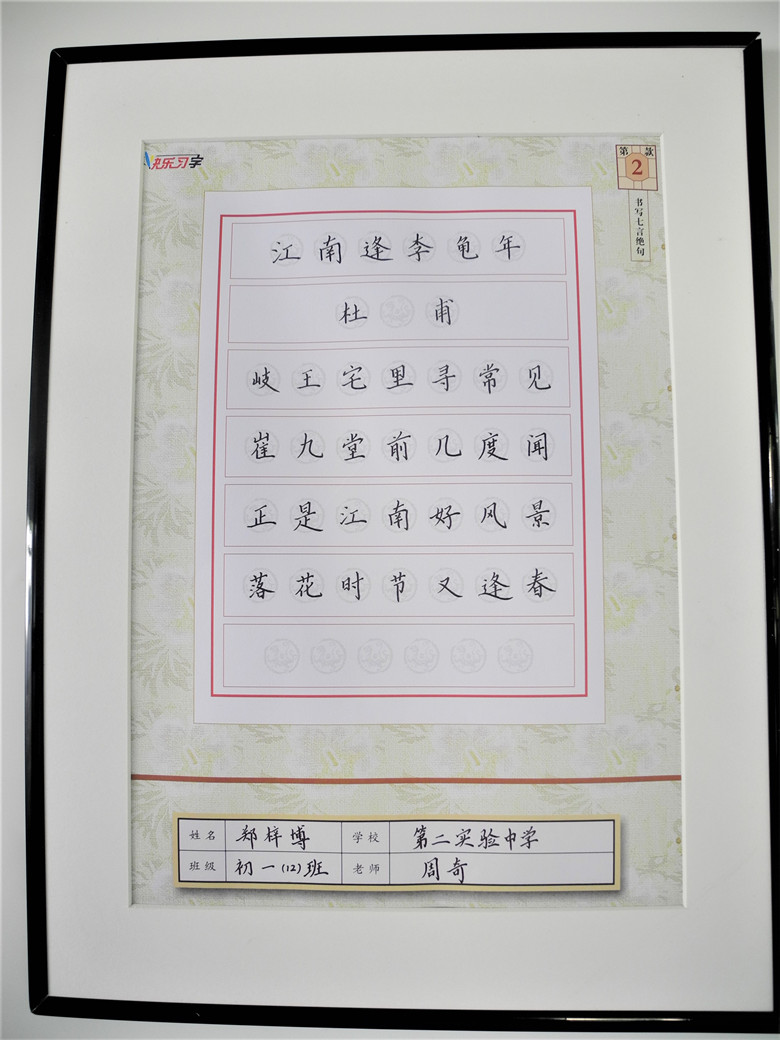 快乐习字
第2款
书写七言绝句
江南逢李龟年
杜甫
岐王宅里寻常见
崔九堂前几度闻
正是江南好风景
落花时节又逢春
姓名 郑梓博 学校 第二实验中学
班级 初一(12)班 老师 周奇